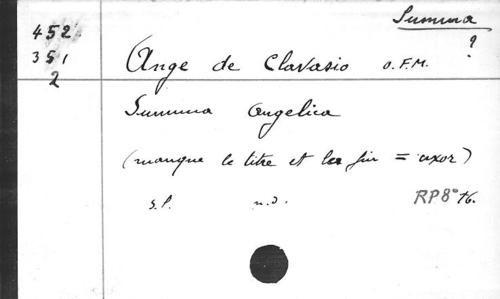 Summa
?
452
351
2
Ange de Clavasio O.F.M.
Summa Angelica
(manque le titre et la fin = uxor)
s.l. n.d. RP8° 76.